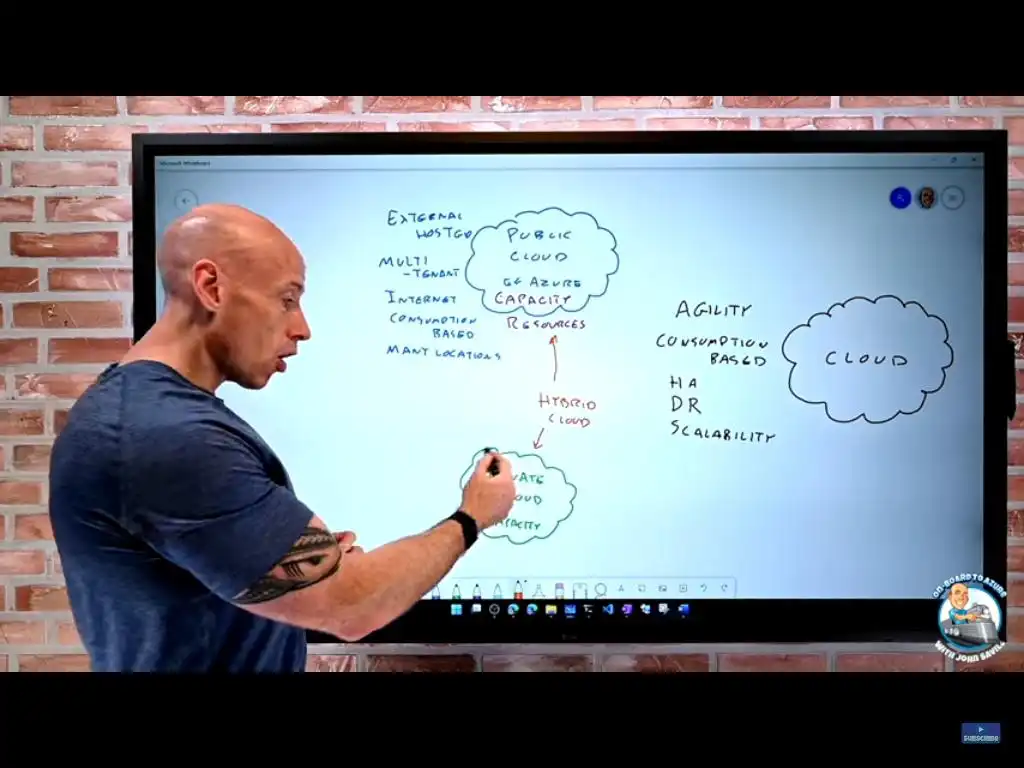 Microsoft Whiteboard
EXTERNAL
HOSTED
MULTI
-TENANT
INTERNET
CONSUMPTION
BASED
MANY LOCATIONS
PUBLIC
CLOUD
EG AZURE
CAPACITY
RESOURCES
HYBRID
CLOUD
AGILITY
CONSUMPTION
BASED
HA
DR
SCALABILITY
CLOUD
ON-BOARD TO AZURE
WITH JOHN SAVILL
SUBSCRIBE